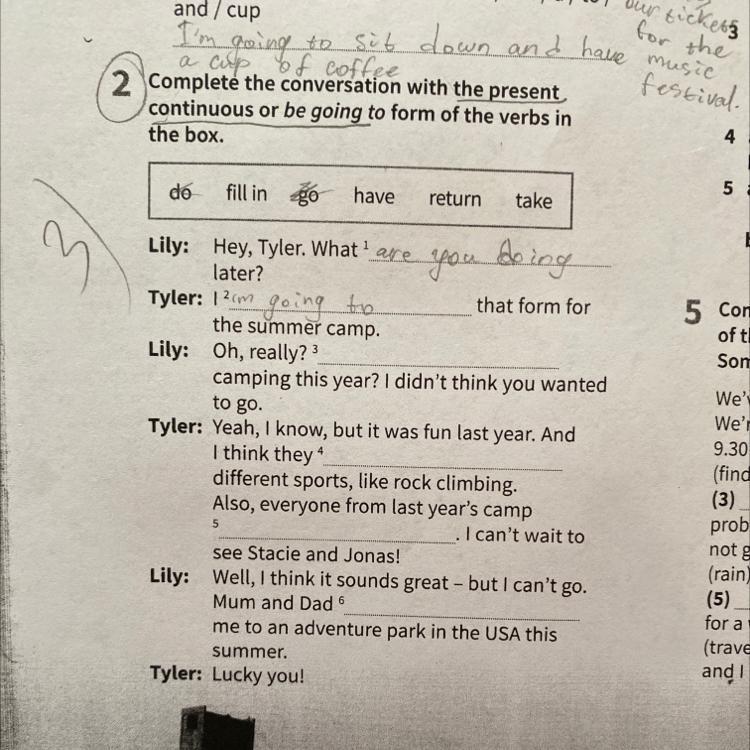 and / cup
our tickets
for the
music
festival.
I'm going to sit down and have
a cup of coffee
3
2 Complete the conversation with the present
continuous or be going to form of the verbs in
the box.
do fill in go have return take
Lily: Hey, Tyler. What ¹ are you doing
later?
Tyler: I ² 'm going to that form for
the summer camp.
Lily: Oh, really? ³
camping this year? I didn't think you wanted
to go.
Tyler: Yeah, I know, but it was fun last year. And
I think they ⁴
different sports, like rock climbing.
Also, everyone from last year's camp
⁵ . I can't wait to
see Stacie and Jonas!
Lily: Well, I think it sounds great – but I can't go.
Mum and Dad ⁶
me to an adventure park in the USA this
summer.
Tyler: Lucky you!
3
4
5
5 Con
of th
Som
We'v
We'r
9.30
(find
(3)
prob
not g
(rain)
(5)
for a
(trave
and I